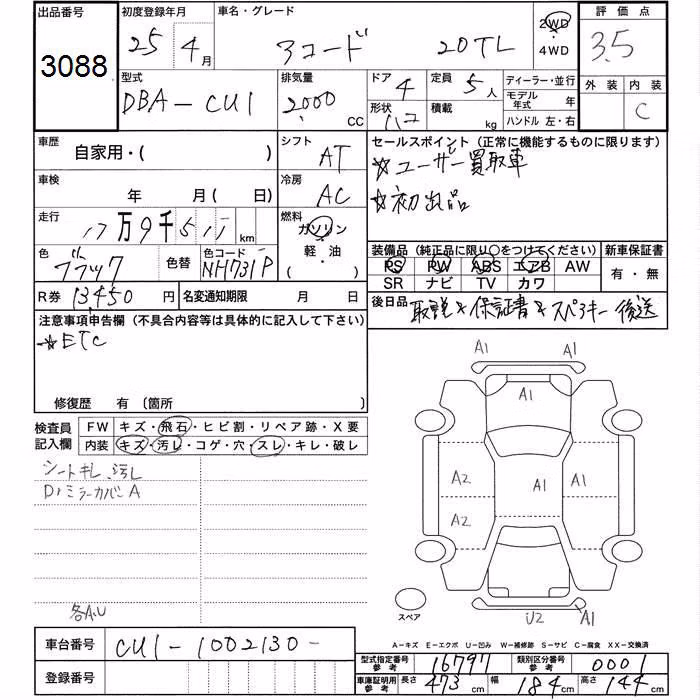 出品番号 初度登録年月 車名・グレード 2WD 評価点
3088 25 4月 アコード 20TL 4WD 3.5
型式 排気量 ドア 4 定員 5人 ディーラー・並行 外装 内装
DBA-CU1 2,000 CC 形状 ハコ 積載 kg モデル年式 年 C
ハンドル 左・右
車歴 シフト セールスポイント (正常に機能するものに限ります)
自家用・( ) AT ☆ユーザー買取車
車検 冷房 ☆初出品
年 月(日) AC
走行 17万9千511 km 燃料 ガソリン 軽・油 ( )
装備品 (純正品に限り○をつけてください) 新車保証書
色 ブラック 色替 色コード NH731P PS PW ABS エアB AW 有・無
SR ナビ TV カワ
R券 13450円 名変通知期限 月 日 後日品 取説☆保証書☆スペアキー後送
注意事項申告欄 (不具合内容等は具体的に記入して下さい)
☆ETC
修復歴 有 (箇所
検査員記入欄 FW キズ・飛石・ヒビ割・リペア跡・X要
内装 キズ・汚レ・コゲ・穴・スレ・キレ・破レ
シートキレ、汚レ
D・ミラーカバーA
各A,U
A1 A1
A1
A2 A1 A1
A2
U2 A1
スペア
車台番号 CU1-1002130-
登録番号
A-キズ E-エクボ U-凹み W-補修跡 S-サビ C-腐食 XX-交換済
型式指定番号 参考 16797 類別区分番号 参考 0001
車庫証明用 参考 長さ 473cm 幅 184cm 高さ 144cm